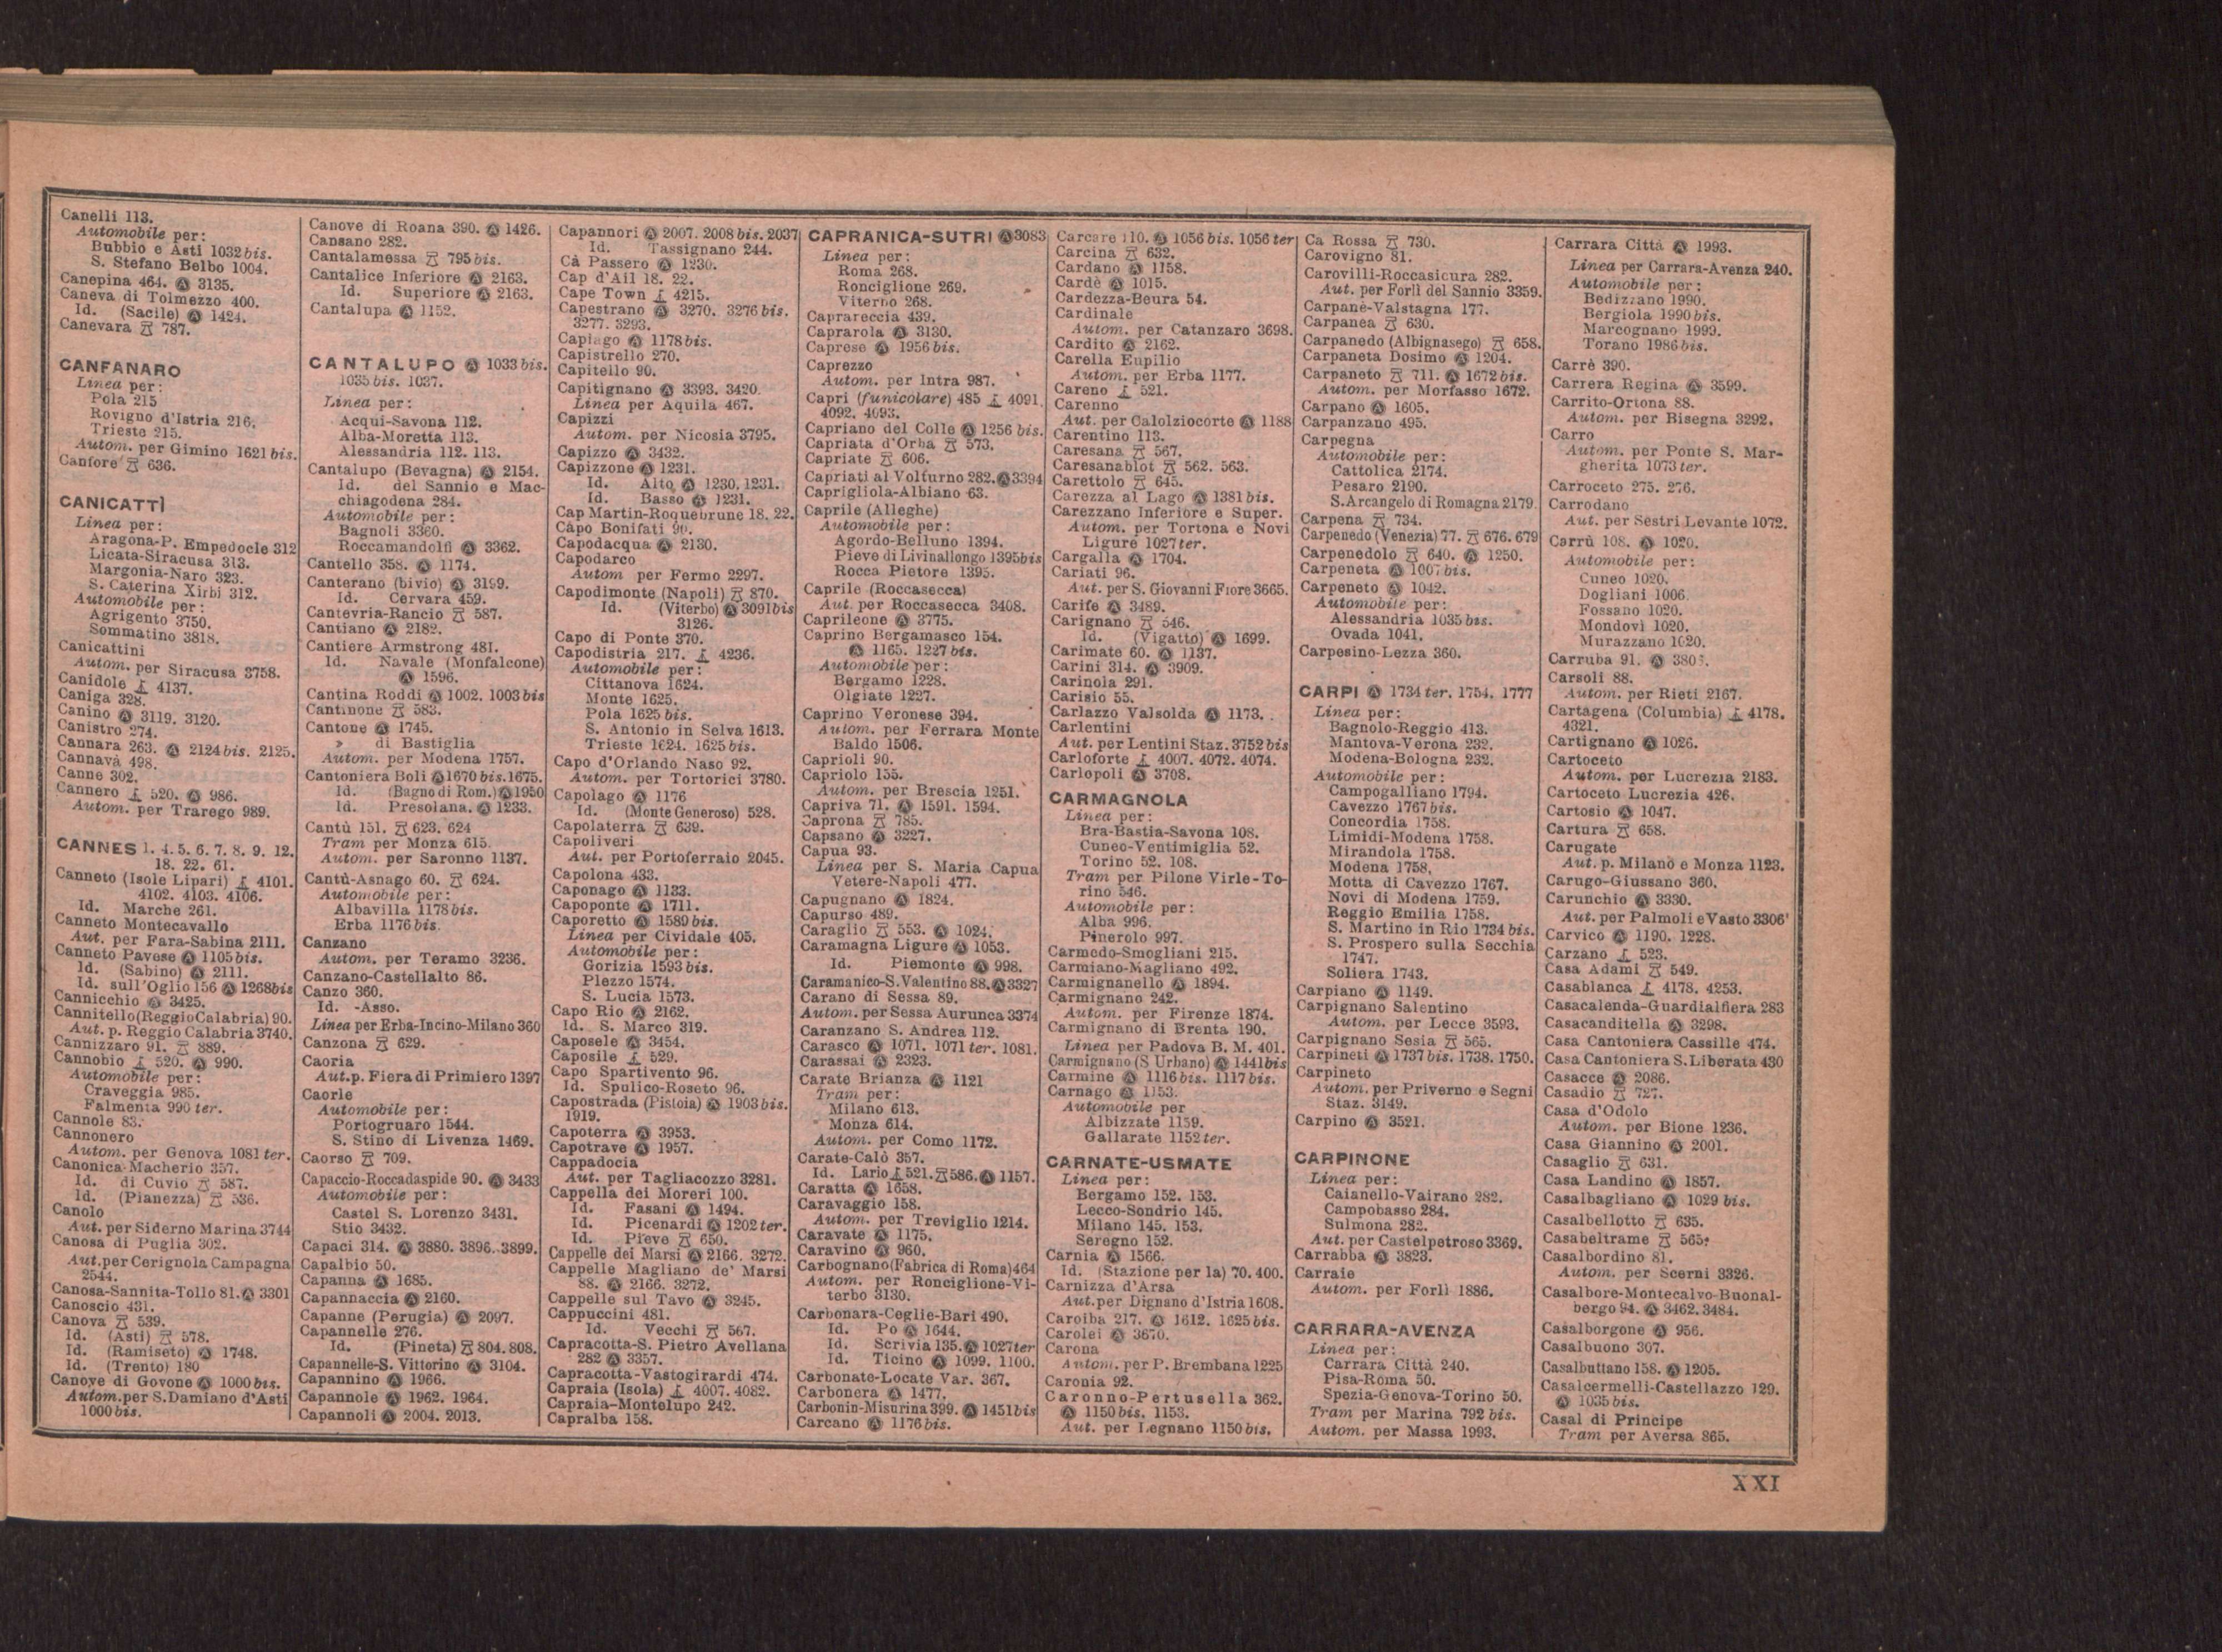 Canelli 113.
Automobile per:
Bubbio e Asti 1032 bis.
S. Stefano Belbo 1004.
Canepina 464. Ⓐ 3135.
Caneva di Tolmezzo 400.
Id. (Sacile) Ⓐ 1424.
Canevara 787.
CANFANARO
Linea per:
Pola 215
Rovigno d'Istria 216.
Trieste 215.
Autom. per Gimino 1621 bis.
Canfore 636.
CANICATTÌ
Linea per:
Aragona-P. Empedocle 312
Licata-Siracusa 313.
Margonia-Naro 323.
S. Caterina Xirbi 312.
Automobile per:
Agrigento 3750.
Sommatino 3818.
Canicattini
Autom. per Siracusa 3758.
Canidole 4137.
Caniga 328.
Canino Ⓐ 3119. 3120.
Canistro 274.
Cannara 263. Ⓐ 2124 bis. 2125.
Cannavà 498.
Canne 302.
Cannero 520. Ⓐ 986.
Autom. per Trarego 989.
CANNES 1. 4. 5. 6. 7. 8. 9. 12.
18. 22. 61.
Canneto (Isole Lipari) 4101.
4102. 4103. 4106.
Id. Marche 261.
Canneto Montecavallo
Aut. per Fara-Sabina 2111.
Canneto Pavese Ⓐ 1105 bis.
Id. (Sabino) Ⓐ 2111.
Id. sull'Oglio 156 Ⓐ 1268 bis
Cannicchio Ⓐ 3425.
Cannitello (Reggio Calabria) 90.
Aut. p. Reggio Calabria 3740.
Cannizzaro 91. 889.
Cannobio 520. Ⓐ 990.
Automobile per:
Craveggia 985.
Falmenta 990 ter.
Cannole 83.
Cannonero
Autom. per Genova 1081 ter.
Canonica-Macherio 357.
Id. di Cuvio 587.
Id. (Pianezza) 536.
Canolo
Aut. per Siderno Marina 3744
Canosa di Puglia 302.
Aut. per Cerignola Campagna
2544.
Canosa-Sannita-Tollo 81. Ⓐ 3301
Canoscio 431.
Canova 539.
Id. (Asti) 578.
Id. (Ramiseto) Ⓐ 1748.
Id. (Trento) 180
Canove di Govone Ⓐ 1000 bis.
Autom. per S. Damiano d'Asti
1000 bis.
Canove di Roana 390. Ⓐ 1426.
Cansano 282.
Cantalamessa 795 bis.
Cantalice Inferiore Ⓐ 2163.
Id. Superiore Ⓐ 2163.
Cantalupa Ⓐ 1152.
CANTALUPO Ⓐ 1033 bis.
1035 bis. 1037.
Linea per:
Acqui-Savona 112.
Alba-Moretta 113.
Alessandria 112. 113.
Cantalupo (Bevagna) Ⓐ 2154.
Id. del Sannio e Mac-
chiagodena 284.
Automobile per:
Bagnoli 3360.
Roccamandolfi Ⓐ 3362.
Cantello 358. Ⓐ 1174.
Canterano (bivio) Ⓐ 3199.
Id. Cervara 459.
Cantevria-Rancio 587.
Cantiano Ⓐ 2182.
Cantiere Armstrong 481.
Id. Navale (Monfalcone)
Ⓐ 1596.
Cantina Roddi Ⓐ 1002. 1003 bis
Cantinone 583.
Cantone Ⓐ 1745.
» di Bastiglia
Autom. per Modena 1757.
Cantoniera Boli Ⓐ 1670 bis. 1675.
Id. (Bagno di Rom.) Ⓐ 1950
Id. Presolana. Ⓐ 1233.
Cantù 151. 623. 624
Tram per Monza 615.
Autom. per Saronno 1137.
Cantù-Asnago 60. 624.
Automobile per:
Albavilla 1178 bis.
Erba 1176 bis.
Canzano
Autom. per Teramo 3236.
Canzano-Castellalto 86.
Canzo 360.
Id. -Asso.
Linea per Erba-Incino-Milano 360
Canzona 629.
Caoria
Aut. p. Fiera di Primiero 1397
Caorle
Automobile per:
Portogruaro 1544.
S. Stino di Livenza 1469.
Caorso 709.
Capaccio-Roccadaspide 90. Ⓐ 3433
Automobile per:
Castel S. Lorenzo 3431.
Stio 3432.
Capaci 314. Ⓐ 3880. 3896. 3899.
Capalbio 50.
Capanna Ⓐ 1685.
Capannaccia Ⓐ 2160.
Capanne (Perugia) Ⓐ 2097.
Capannelle 276.
Id. (Pineta) 804. 808.
Capannelle-S. Vittorino Ⓐ 3104.
Capannino Ⓐ 1966.
Capannole Ⓐ 1962. 1964.
Capannoli Ⓐ 2004. 2013.
Capannori Ⓐ 2007. 2008 bis. 2037
Id. Tassignano 244.
Cà Passero Ⓐ 1230.
Cap d'Ail 18. 22.
Cape Town 4215.
Capestrano Ⓐ 3270. 3276 bis.
3277. 3293.
Capiago Ⓐ 1178 bis.
Capistrello 270.
Capitello 90.
Capitignano Ⓐ 3393. 3420.
Linea per Aquila 467.
Capizzi
Autom. per Nicosia 3795.
Capizzo Ⓐ 3432.
Capizzone Ⓐ 1231.
Id. Alto Ⓐ 1230. 1231.
Id. Basso Ⓐ 1231.
Cap Martin-Roquebrune 18. 22.
Càpo Bonifati 90.
Capodacqua Ⓐ 2130.
Capodarco
Autom per Fermo 2297.
Capodimonte (Napoli) 870.
Id. (Viterbo) Ⓐ 3091 bis
3126.
Capo di Ponte 370.
Capodistria 217. 4236.
Automobile per:
Cittanova 1624.
Monte 1625.
Pola 1625 bis.
S. Antonio in Selva 1613.
Trieste 1624. 1625 bis.
Capo d'Orlando Naso 92.
Autom. per Tortorici 3780.
Capolago Ⓐ 1176
Id. (Monte Generoso) 528.
Capolaterra 639.
Capoliveri
Aut. per Portoferraio 2045.
Capolona 433.
Caponago Ⓐ 1133.
Capoponte Ⓐ 1711.
Caporetto Ⓐ 1589 bis.
Linea per Cividale 405.
Automobile per:
Gorizia 1593 bis.
Plezzo 1574.
S. Lucia 1573.
Capo Rio Ⓐ 2162.
Id. S. Marco 319.
Caposele Ⓐ 3454.
Caposile 529.
Capo Spartivento 96.
Id. Spulico-Roseto 96.
Capostrada (Pistoia) Ⓐ 1903 bis.
1919.
Capoterra Ⓐ 3953.
Capotrave Ⓐ 1957.
Cappadocia
Aut. per Tagliacozzo 3281.
Cappella dei Moreri 100.
Id. Fasani Ⓐ 1494.
Id. Picenardi Ⓐ 1202 ter.
Id. Pieve 650.
Cappelle dei Marsi Ⓐ 2166. 3272.
Cappelle Magliano de' Marsi
88. Ⓐ 2166. 3272.
Cappelle sul Tavo Ⓐ 3245.
Cappuccini 481.
Id. Vecchi 567.
Capracotta-S. Pietro Avellana
282 Ⓐ 3357.
Capracotta-Vastogirardi 474.
Capraia (Isola) 4007. 4082.
Capraia-Montelupo 242.
Capralba 158.
CAPRANICA-SUTRI Ⓐ 3083
Linea per:
Roma 268.
Ronciglione 269.
Viterbo 268.
Caprareccia 439.
Caprarola Ⓐ 3130.
Caprese Ⓐ 1956 bis.
Caprezzo
Autom. per Intra 987.
Capri (funicolare) 485 4091.
4092. 4093.
Capriano del Colle Ⓐ 1256 bis.
Capriata d'Orba 573.
Capriate 606.
Capriati al Volturno 282. Ⓐ 3394
Caprigliola-Albiano 63.
Caprile (Alleghe)
Automobile per:
Agordo-Belluno 1394.
Pieve di Livinallongo 1395 bis
Rocca Pietore 1395.
Caprile (Roccasecca)
Aut. per Roccasecca 3408.
Caprileone Ⓐ 3775.
Caprino Bergamasco 154.
Ⓐ 1165. 1227 bis.
Automobile per:
Bergamo 1228.
Olgiate 1227.
Caprino Veronese 394.
Autom. per Ferrara Monte
Baldo 1506.
Caprioli 90.
Capriolo 155.
Autom. per Brescia 1251.
Capriva 71. Ⓐ 1591. 1594.
Caprona 785.
Capsano Ⓐ 3227.
Capua 93.
Linea per S. Maria Capua
Vetere-Napoli 477.
Capugnano Ⓐ 1824.
Capurso 489.
Caraglio 553. Ⓐ 1024.
Caramagna Ligure Ⓐ 1053.
Id. Piemonte Ⓐ 998.
Caramanico-S. Valentino 88. Ⓐ 3327
Carano di Sessa 89.
Autom. per Sessa Aurunca 3374
Caranzano S. Andrea 112.
Carasco Ⓐ 1071. 1071 ter. 1081.
Carassai Ⓐ 2323.
Carate Brianza Ⓐ 1121
Tram per:
Milano 613.
Monza 614.
Autom. per Como 1172.
Carate-Calò 357.
Id. Lario 521. 586. Ⓐ 1157.
Caratta Ⓐ 1658.
Caravaggio 158.
Autom. per Treviglio 1214.
Caravate Ⓐ 1175.
Caravino Ⓐ 960.
Carbognano (Fabrica di Roma) 464
Autom. per Ronciglione-Vi-
terbo 3130.
Carbonara-Ceglie-Bari 490.
Id. Po Ⓐ 1644.
Id. Scrivia 135. Ⓐ 1027 ter
Id. Ticino Ⓐ 1099. 1100.
Carbonate-Locate Var. 367.
Carbonera Ⓐ 1477.
Carbonin-Misurina 399. Ⓐ 1451 bis
Carcano Ⓐ 1176 bis.
Carcare 110. Ⓐ 1056 bis. 1056 ter
Carcina 632.
Cardano Ⓐ 1158.
Cardè Ⓐ 1015.
Cardezza-Beura 54.
Cardinale
Autom. per Catanzaro 3698.
Cardito Ⓐ 2162.
Carella Eupilio
Autom. per Erba 1177.
Careno 521.
Carenno
Aut. per Calolziocorte Ⓐ 1188
Carentino 113.
Caresana 567.
Caresanablot 562. 563.
Carettolo 645.
Carezza al Lago Ⓐ 1381 bis.
Carezzano Inferiore e Super.
Autom. per Tortona e Novi
Ligure 1027 ter.
Cargalla Ⓐ 1704.
Cariati 96.
Aut. per S. Giovanni Fiore 3665.
Carife Ⓐ 3489.
Carignano 546.
Id. (Vigatto) Ⓐ 1699.
Carimate 60. Ⓐ 1137.
Carini 314. Ⓐ 3909.
Carinola 291.
Carisio 55.
Carlazzo Valsolda Ⓐ 1173.
Carlentini
Aut. per Lentini Staz. 3752 bis
Carloforte 4007. 4072. 4074.
Carlopoli Ⓐ 3708.
CARMAGNOLA
Linea per:
Bra-Bastia-Savona 108.
Cuneo-Ventimiglia 52.
Torino 52. 108.
Tram per Pilone Virle-To-
rino 546.
Automobile per:
Alba 996.
Pinerolo 997.
Carmedo-Smogliani 215.
Carmiano-Magliano 492.
Carmignanello Ⓐ 1894.
Carmignano 242.
Autom. per Firenze 1874.
Carmignano di Brenta 190.
Linea per Padova B. M. 401.
Carmignano (S Urbano) Ⓐ 1441 bis
Carmine Ⓐ 1116 bis. 1117 bis.
Carnago Ⓐ 1153.
Automobile per
Albizzate 1159.
Gallarate 1152 ter.
CARNATE-USMATE
Linea per:
Bergamo 152. 153.
Lecco-Sondrio 145.
Milano 145. 153.
Seregno 152.
Carnia Ⓐ 1566.
Id. (Stazione per la) 70. 400.
Carnizza d'Arsa
Aut. per Dignano d'Istria 1608.
Caroiba 217. Ⓐ 1612. 1625 bis.
Carolei Ⓐ 3670.
Carona
Autom. per P. Brembana 1225
Caronia 92.
Caronno-Pertusella 362.
Ⓐ 1150 bis. 1153.
Aut. per Legnano 1150 bis.
Ca Rossa 730.
Carovigno 81.
Carovilli-Roccasicura 282.
Aut. per Forlì del Sannio 3359.
Carpanè-Valstagna 177.
Carpanea 630.
Carpanedo (Albignasego) 658.
Carpaneta Dosimo Ⓐ 1204.
Carpaneto 711. Ⓐ 1672 bis.
Autom. per Morfasso 1672.
Carpano Ⓐ 1605.
Carpanzano 495.
Carpegna
Automobile per:
Cattolica 2174.
Pesaro 2190.
S. Arcangelo di Romagna 2179.
Carpena 734.
Carpenedo (Venezia) 77. 676. 679
Carpenedolo 640. Ⓐ 1250.
Carpeneta Ⓐ 1007 bis.
Carpeneto Ⓐ 1042.
Automobile per:
Alessandria 1035 bis.
Ovada 1041.
Carpesino-Lezza 360.
CARPI Ⓐ 1734 ter. 1754. 1777
Linea per:
Bagnolo-Reggio 413.
Mantova-Verona 232.
Modena-Bologna 232.
Automobile per:
Campogalliano 1794.
Cavezzo 1767 bis.
Concordia 1758.
Limidi-Modena 1758.
Mirandola 1758.
Modena 1758.
Motta di Cavezzo 1767.
Novi di Modena 1759.
Reggio Emilia 1758.
S. Martino in Rio 1734 bis.
S. Prospero sulla Secchia
1747.
Soliera 1743.
Carpiano Ⓐ 1149.
Carpignano Salentino
Autom. per Lecce 3593.
Carpignano Sesia 565.
Carpineti Ⓐ 1737 bis. 1738. 1750.
Carpineto
Autom. per Priverno e Segni
Staz. 3149.
Carpino Ⓐ 3521.
CARPINONE
Linea per:
Caianello-Vairano 282.
Campobasso 284.
Sulmona 282.
Aut. per Castelpetroso 3369.
Carrabba Ⓐ 3823.
Carraie
Autom. per Forlì 1886.
CARRARA-AVENZA
Linea per:
Carrara Città 240.
Pisa-Roma 50.
Spezia-Genova-Torino 50.
Tram per Marina 792 bis.
Autom. per Massa 1993.
Carrara Città Ⓐ 1993.
Linea per Carrara-Avenza 240.
Automobile per:
Bedizzano 1990.
Bergiola 1990 bis.
Marcognano 1999.
Torano 1986 bis.
Carrè 390.
Carrera Regina Ⓐ 3599.
Carrito-Ortona 88.
Autom. per Bisegna 3292.
Carro
Autom. per Ponte S. Mar-
gherita 1073 ter.
Carroceto 275. 276.
Carrodano
Aut. per Sestri Levante 1072.
Carrù 108. Ⓐ 1020.
Automobile per:
Cuneo 1020.
Dogliani 1006.
Fossano 1020.
Mondovì 1020.
Murazzano 1020.
Carruba 91. Ⓐ
Carsoli 88.
Autom. per Rieti 2167.
Cartagena (Columbia) 4178.
4321.
Cartignano Ⓐ 1026.
Cartoceto
Autom. per Lucrezia 2183.
Cartoceto Lucrezia 426.
Cartosio Ⓐ 1047.
Cartura 658.
Carugate
Aut. p. Milano e Monza 1123.
Carugo-Giussano 360.
Carunchio Ⓐ 3330.
Aut. per Palmoli e Vasto 3306
Carvico Ⓐ 1190. 1228.
Carzano 523.
Casa Adami 549.
Casablanca 4178. 4253.
Casacalenda-Guardialfiera 283
Casacanditella Ⓐ 3298.
Casa Cantoniera Cassille 474.
Casa Cantoniera S. Liberata 430
Casacce Ⓐ 2086.
Casadio 727.
Casa d'Odolo
Autom. per Bione 1236.
Casa Giannino Ⓐ 2001.
Casaglio 631.
Casa Landino Ⓐ 1857.
Casalbagliano Ⓐ 1029 bis.
Casalbellotto 635.
Casabeltrame 565.
Casalbordino 81.
Autom. per Scerni 3326.
Casalbore-Montecalvo-Buonal-
bergo 94. Ⓐ 3462. 3484.
Casalborgone Ⓐ 956.
Casalbuono 307.
Casalbuttano 158. Ⓐ 1205.
Casalcermelli-Castellazzo 129.
Ⓐ 1035 bis.
Casal di Principe
Tram per Aversa 865.
XXI